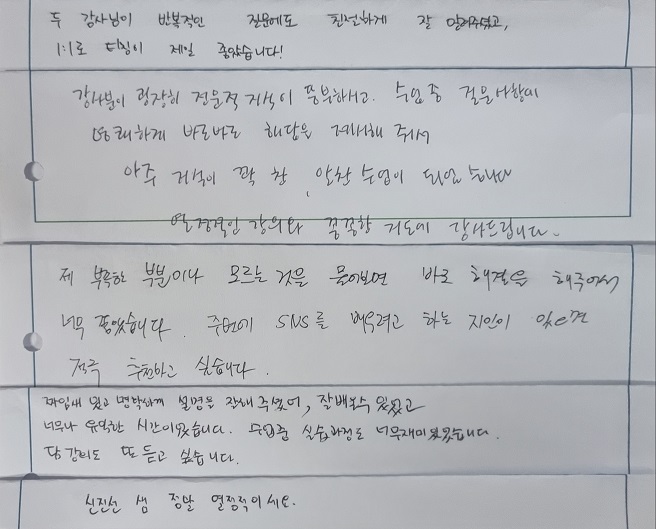 두 강사님이 반복적인 질문에도 친절하게 잘 알려주셨고,
1:1로 티칭이 제일 좋았습니다!
강사분이 굉장히 전문적 지식이 풍부하시고. 수업 중 질문사항이
명쾌하게 바로바로 해답을 제시해 주셔서
아주 지식이 꽉 찬, 알찬 수업이 되었습니다
열정적인 강의와 꼼꼼한 지도에 감사드립니다.
제 부족한 부분이나 모르는 것을 물어보면 바로 해결을 해주어서
너무 좋았습니다. 주변에 SNS를 배우려고 하는 지인이 있으면
적극 추천하고 싶습니다.
짜임새 있고 명확하게 설명을 잘해 주셨어, 잘 배울수 있었고
너무나 유익한 시간이었습니다. 수업준 실습과정도 너무 재미있었습니다.
담 강의도 또 듣고 싶습니다.
신진선 샘 정말 열정적이세요.